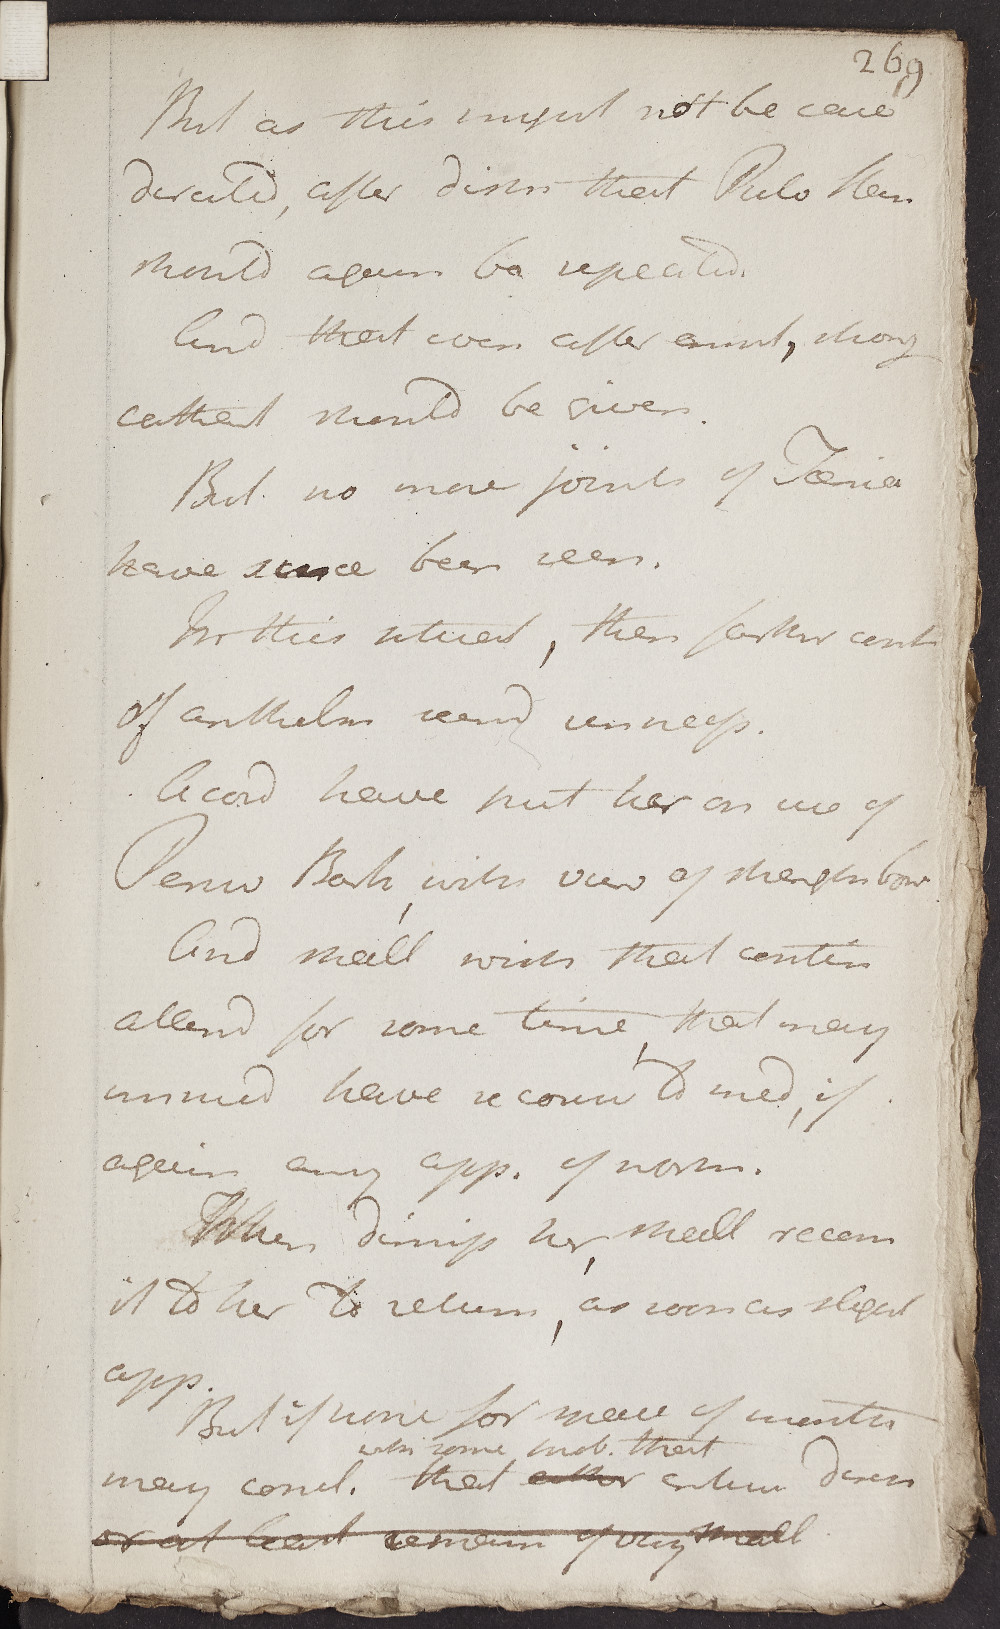 269
But as this might not be case
directed, after dism that Pulv Stan
should again be repeated.
And that even after event, strong
cathart should be given.
But no more joints of Tænia
have since been seen.
In this situat, then farther cont
of anthelm seemd unnecess.
Acord have put her on use of
Peruv Bark, with view of strengthn bow
And shall wish that contin
attend for some time, that may
immed have recours to med, if
again any app. of worm.
When dimiss her, shall recom
it to her to return, as soon as slight
app.
But if none for space of months
with some prob. that
may concl. that either entire
or at least remain of very small